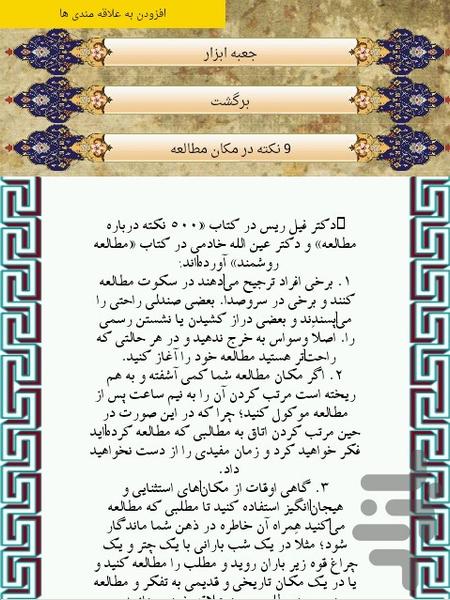 افزودن به علاقه مندی ها
جعبه ابزار
برگشت
9 نکته در مکان مطالعه
دکتر فیل ریس در کتاب «۵۰۰ نکته درباره
مطالعه» و دکتر عین الله خادمی در کتاب «مطالعه
روشمند» آورده‌اند:
۱. برخی افراد ترجیح می‌دهند در سکوت مطالعه
کنند و برخی در سروصدا. بعضی صندلی راحتی را
می‌پسندند و بعضی دراز کشیدن یا نشستن رسمی
را. اصلا وسواس به خرج ندهید و در هر حالتی که
راحت‌تر هستید مطالعه خود را آغاز کنید.
۲. اگر مکان مطالعه شما کمی آشفته و به هم
ریخته است مرتب کردن آن را به نیم ساعت پس از
مطالعه موکول کنید؛ چرا که در این صورت در
حین مرتب کردن اتاق به مطالبی که مطالعه کرده‌اید
فکر خواهید کرد و زمان مفیدی را از دست نخواهید
داد.
۳. گاهی اوقات از مکان‌های استثنایی و
هیجان‌انگیز استفاده کنید تا مطلبی که مطالعه
می‌کنید همراه آن خاطره در ذهن شما ماندگار
شود؛ مثلا در یک شب بارانی با یک چتر و یک
چراغ قوه زیر باران روید و مطلب را مطالعه کنید و
یا در یک مکان تاریخی و قدیمی به تفکر و مطالعه